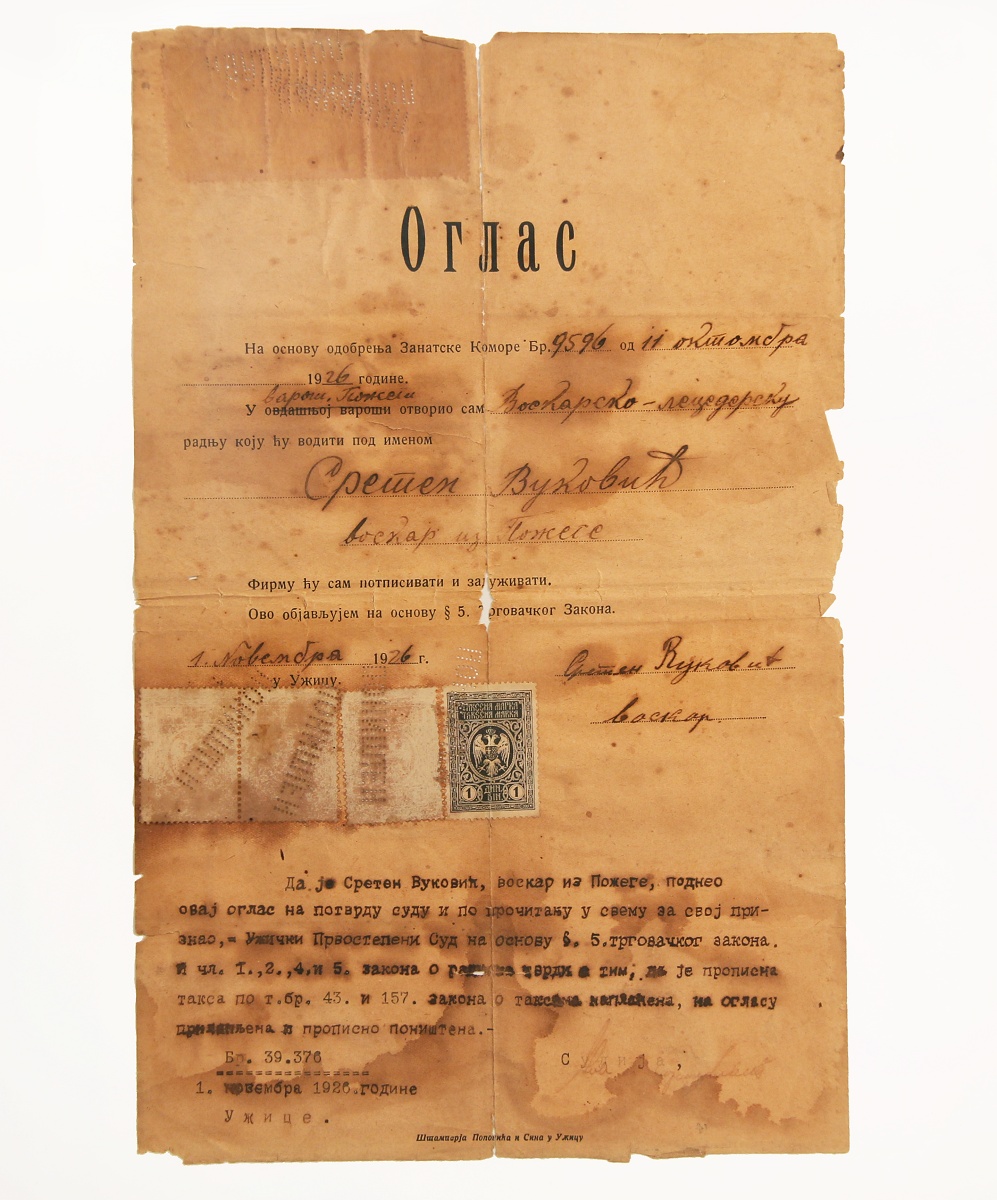 Оглас
На основу одобрења Занатске Коморе Бр. 9596 од 11 октомбра
1926 године.
вароши Пожеги
У овдашњој вароши отворио сам Воскарско-лецедерску
радњу коју ћу водити под именом
Сретен Вуковић
воскар из Пожеге
Фирму ћу сам потписивати и задуживати.
Ово објављујем на основу § 5. Трговачког Закона.
1. Новембра 1926 г.
у Ужицу.
Сретен Вуковић
воскар
ТАКСЕНА МАРКА
ТАКСЕНА МАРКА
1 ДИН DIN 1
Да је Сретен Вуковић, воскар из Пожеге, поднео
овај оглас на потврду суду и по прочитању у свему за свој при-
знао,= Ужички Првостепени Суд на основу §. 5.трговачког закона.
И чл. 1.,2.,4,и 5. закона о тврди с тим, да је прописна
такса по т.бр. 43. и 157. закона о таксама наплаћена, на огласу
прилепљена и прописно поништена.-
Бр. 39.376
Судија,
1. новембра 1926.године
Ужице.
Штампарја Поповића и Сина у Ужицу